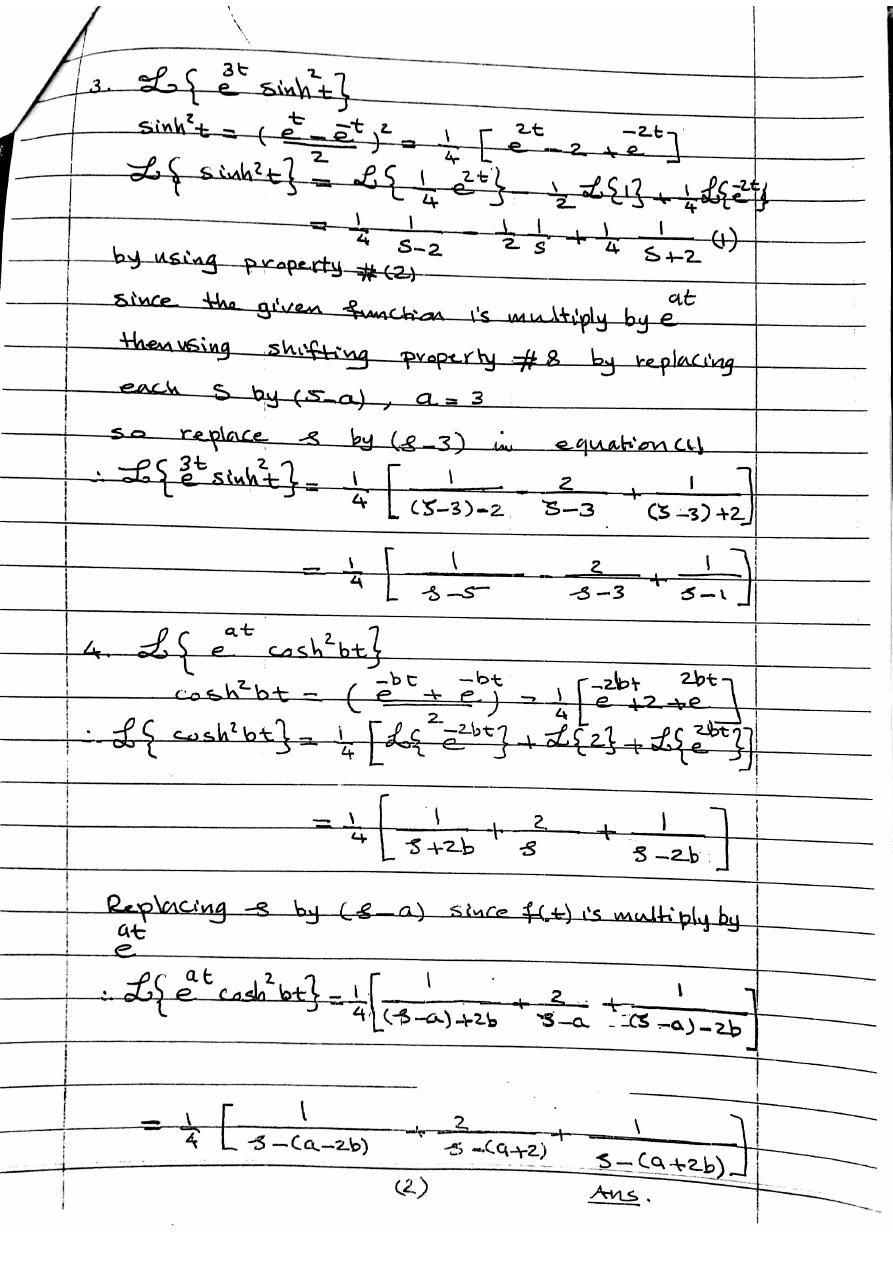 3. ℒ{ e^3t sinh²t}
sinh²t = ( (e^t - e^-t)/2 )² = 1/4 [ e^2t - 2 + e^-2t ]
ℒ{ sinh²t} = ℒ{ 1/4 e^2t} - 1/2 ℒ{1} + 1/4 ℒ{e^-2t}
= 1/4 1/(S-2) - 1/2 1/S + 1/4 1/(S+2) (1)
by using property #(2)
since the given function is multiply by e^at
then using shifting property #8 by replacing
each S by (S-a), a = 3
so replace s by (s-3) in equation (1)
∴ ℒ{ e^3t sinh²t} = 1/4 [ 1/((S-3)-2) - 2/(S-3) + 1/((S-3)+2) ]
= 1/4 [ 1/(s-5) - 2/(s-3) + 1/(s-1) ]
4. ℒ{ e^at cosh²bt}
cosh²bt = ( (e^-bt + e^-bt)/2 ) = 1/4 [ e^-2bt + 2 + e^2bt ]
∴ ℒ{ cosh²bt} = 1/4 [ ℒ{ e^-2bt} + ℒ{2} + ℒ{ e^2bt} ]
= 1/4 [ 1/(s+2b) + 2/s + 1/(s-2b) ]
Replacing s by (s-a) since f(t) is multiply by
e^at
∴ ℒ{ e^at cosh²bt} = 1/4 [ 1/((s-a)+2b) + 2/(s-a) + 1/((s-a)-2b) ]
= 1/4 [ 1/(s-(a-2b)) + 2/(s-(a+2)) + 1/(s-(a+2b)) ]
(2) Ans.